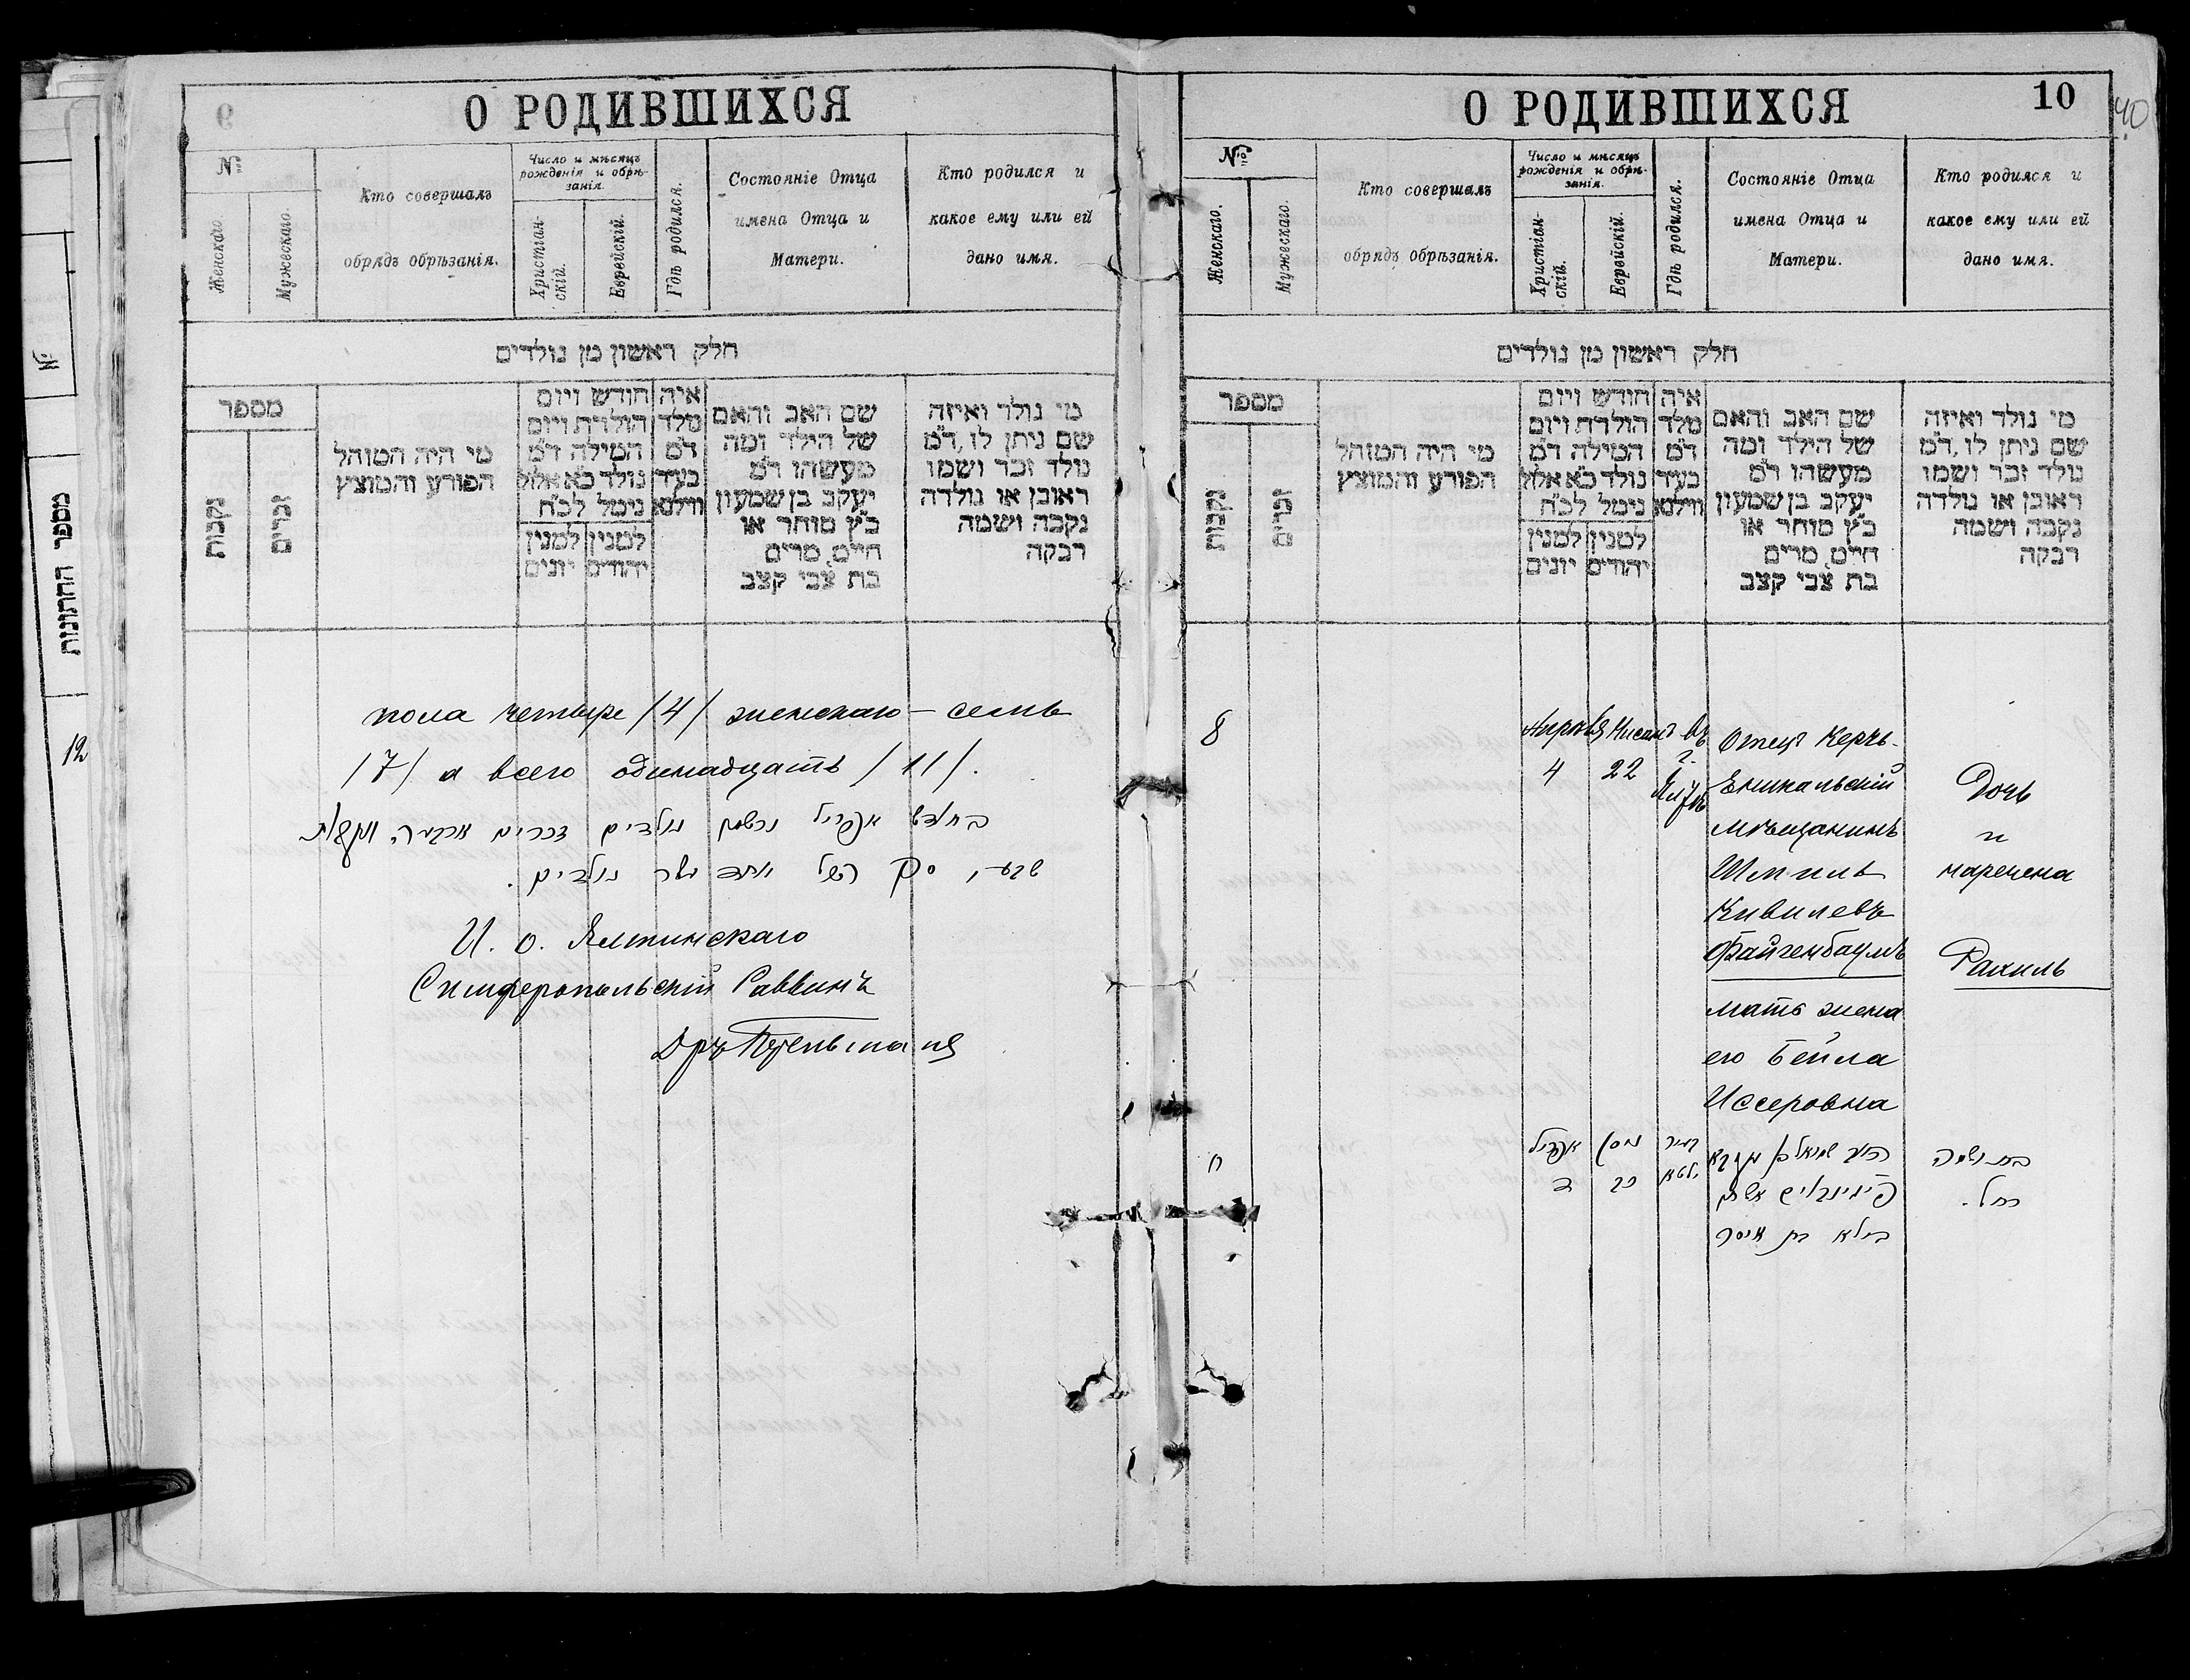 О РОДИВШИХСЯ
№
Женскаго
Мужескаго.
Кто совершалъ
обрядъ обрѣзанія.
Число и мѣсяцъ
рожденія и обрѣ-
занія.
Христіан-
скій.
Еврейскій.
Гдѣ родился.
Состояніе Отца
имена Отца и
Матери.
Кто родился и
какое ему или ей
дано имя.
חלק ראשון מן נולדים
מספר
נקבות
זכרים
מי היה המוהל
הפורע והמוצץ
חודש ויום
הולדת ויום
המילה ד״מ
נולד כ״א אלול
נימל לכ״ח
למנין
יהודים
למנין
יונים
איה
מלד
ד״מ
בעיר
ווילנא
שם האב והאם
של הילד ומה
מעשהו ד״מ
יעקב בן שמעון
כ״ץ סוחר או
חייט, מרים
בת צבי קצב
מי נולד ואיזה
שם ניתן לו, ד״מ
נולד זכר ושמו
ראובן או נולדה
נקבה ושמה
רבקה
пола четыре /4/ женскаго – семь
/7/ а всего одинадцать /11/.
בחודש אפריל נרשמו נולדים זכרים ארבעה, נקבות
שבעה, סך הכל אחד עשר נולדים.
И. о. Ялтинскаго
Симферопольскій Раввинъ
О РОДИВШИХСЯ
10
40
№
Женскаго.
Мужескаго.
Кто совершалъ
обрядъ обрѣзанія.
Число и мѣсяцъ
рожденія и обрѣ-
занія.
Христіан-
скій.
Еврейскій.
Гдѣ родился.
Состояніе Отца
имена Отца и
Матери.
Кто родился и
какое ему или ей
дано имя.
חלק ראשון מן נולדים
מספר
נקבות
זכרים
מי היה המוהל
הפורע והמוצץ
חודש ויום
הולדת ויום
המילה ד״מ
נולד כ״א אלול
נימל לכ״ח
למנין
יהודים
למנין
יונים
איה
מלד
ד״מ
בעיר
ווילנא
שם האב והאם
של הילד ומה
מעשהו ד״מ
יעקב בן שמעון
כ״ץ סוחר או
חייט, מרים
בת צבי קצב
מי נולד ואיזה
שם ניתן לו, ד״מ
נולד זכר ושמו
ראובן או נולדה
נקבה ושמה
רבקה
8
Апрѣля
4
Нисанъ
22
Въ
г.
Ялтѣ
Отецъ Керчь-
Еникальскій
мѣщанинъ
Шмиль
Кивилевъ
Файгенбаумъ
мать жена
его Бейла
Иссеровна
Дочь
и
наречена
Рахиль
ח
אפריל
ד
ניסן
כב
בעיר
יאלטא
פייגינבוים אשתו
ביילא בת איסר
בת ושמה
רחל.
№
מספר החתונות
12